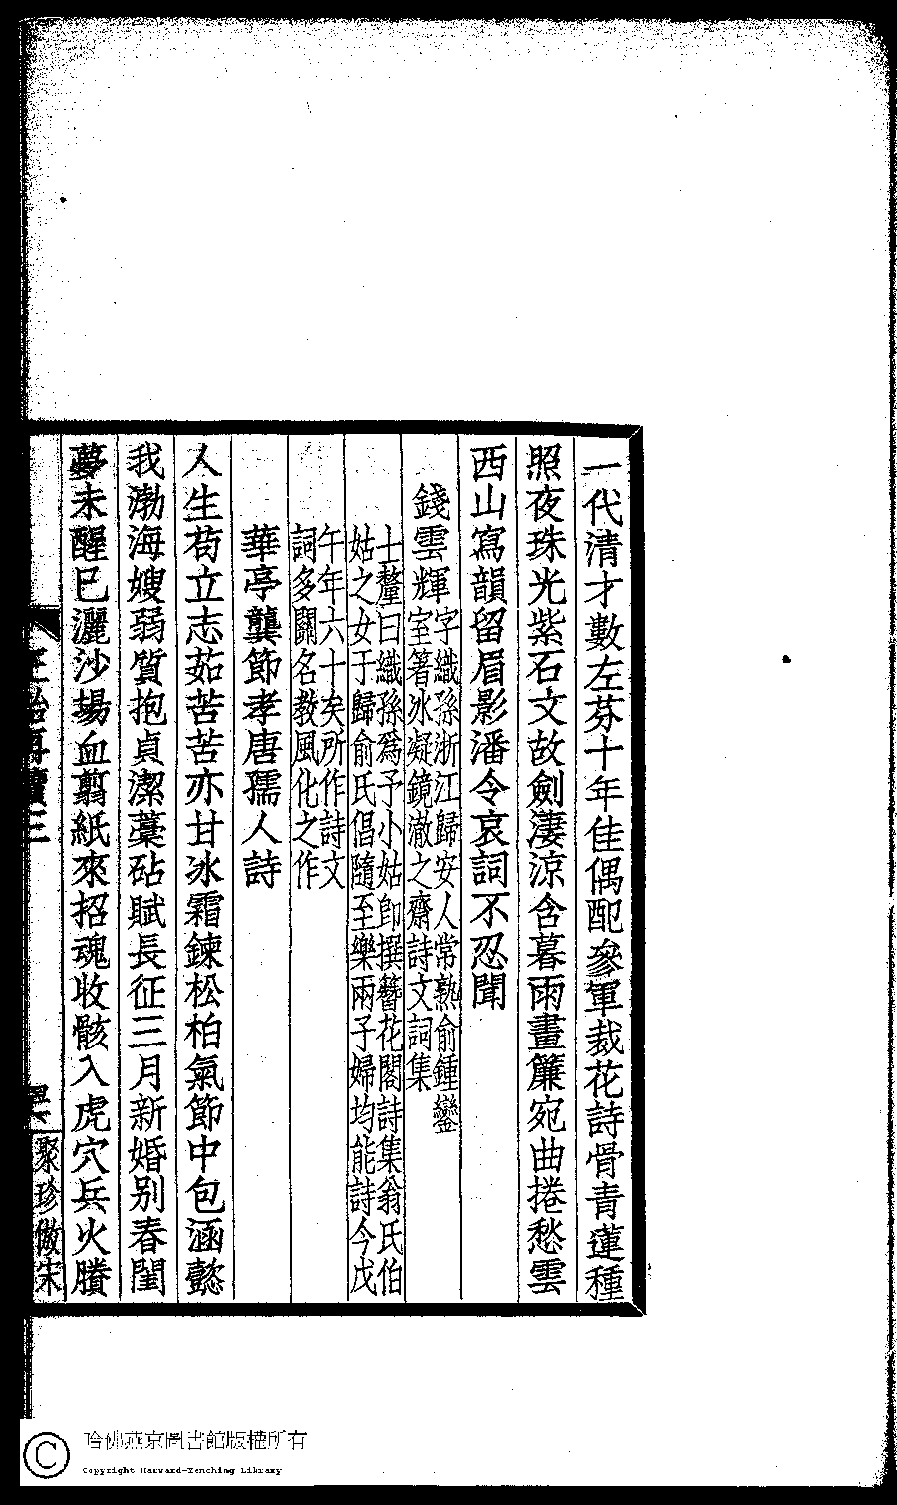 一代清才數左芬十年佳偶配參軍裁花詩骨青蓮種
照夜珠光紫石文故劍淒涼含暮雨畫簾宛曲捲愁雲
西山寫韻留眉影潘令哀詞不忍聞
錢雲輝
字織孫浙江歸安人常熟俞鍾鑾
室箸冰凝鏡澈之齋詩文詞集
士釐曰織孫爲予小姑卽撰簪花閣詩集翁氏伯
姑之女于歸俞氏倡隨至樂兩子婦均能詩今戊
午年六十矣所作詩文
詞多關名教風化之作
華亭龔節孝唐孺人詩
人生苟立志茹苦苦亦甘冰霜鍊松柏氣節中包涵懿
我渤海嫂弱質抱貞潔藁砧賦長征三月新婚別春閨
夢未醒巳灑沙場血翦紙來招魂收骸入虎穴兵火賸
聚珍倣宋
哈佛燕京圖書館版權所有
Copyright Harvard-Yenching Library